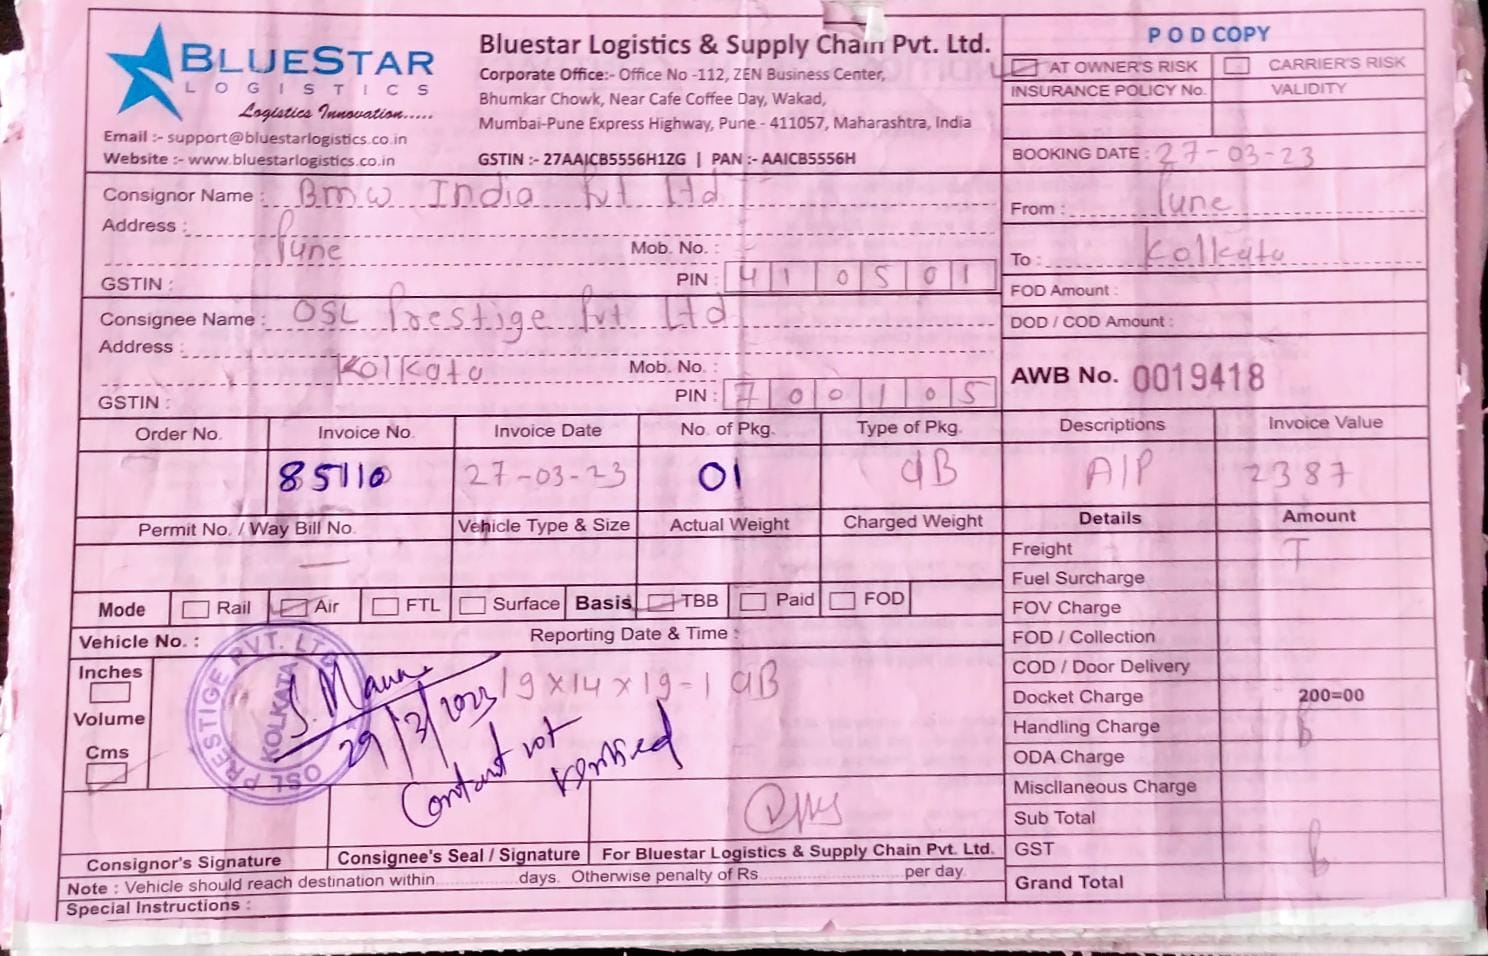 BLUESTAR
LOGISTICS
Logistics Innovation.....
Email :- support@bluestarlogistics.co.in
Website :- www.bluestarlogistics.co.in
Bluestar Logistics & Supply Chain Pvt. Ltd.
Corporate Office:- Office No -112, ZEN Business Center,
Bhumkar Chowk, Near Cafe Coffee Day, Wakad,
Mumbai-Pune Express Highway, Pune - 411057, Maharashtra, India
GSTIN :- 27AAICB5556H1ZG | PAN :- AAICB5556H
POD COPY
AT OWNER'S RISK CARRIER'S RISK
INSURANCE POLICY No. VALIDITY
BOOKING DATE : 27-03-23
Consignor Name : Bmw India Pvt Ltd
Address :
Pune Mob. No. :
GSTIN : PIN : 410501
From : Pune
To : Kolkata
FOD Amount :
DOD / COD Amount :
Consignee Name : OSL Prestige Pvt Ltd
Address :
Kolkata Mob. No. :
GSTIN : PIN : 700105
AWB No. 0019418
Order No. Invoice No. Invoice Date No. of Pkg. Type of Pkg. Descriptions Invoice Value
85110 27-03-23 01 CIB A/P 2387
Permit No. / Way Bill No. Vehicle Type & Size Actual Weight Charged Weight Details Amount
Freight T
Fuel Surcharge
FOV Charge
FOD / Collection
COD / Door Delivery
Docket Charge 200=00
Handling Charge
ODA Charge
Miscllaneous Charge
Sub Total
GST
Grand Total
Mode Rail Air FTL Surface Basis TBB Paid FOD
Vehicle No. : Reporting Date & Time :
Inches
Volume
Cms
OSL PRESTIGE PVT. LTD
KOLKATA
29/3/2023
19x14x19-1 CIB
Contant not
verified
Consignor's Signature Consignee's Seal / Signature For Bluestar Logistics & Supply Chain Pvt. Ltd.
Note : Vehicle should reach destination within..................days. Otherwise penalty of Rs..............................per day
Special Instructions :